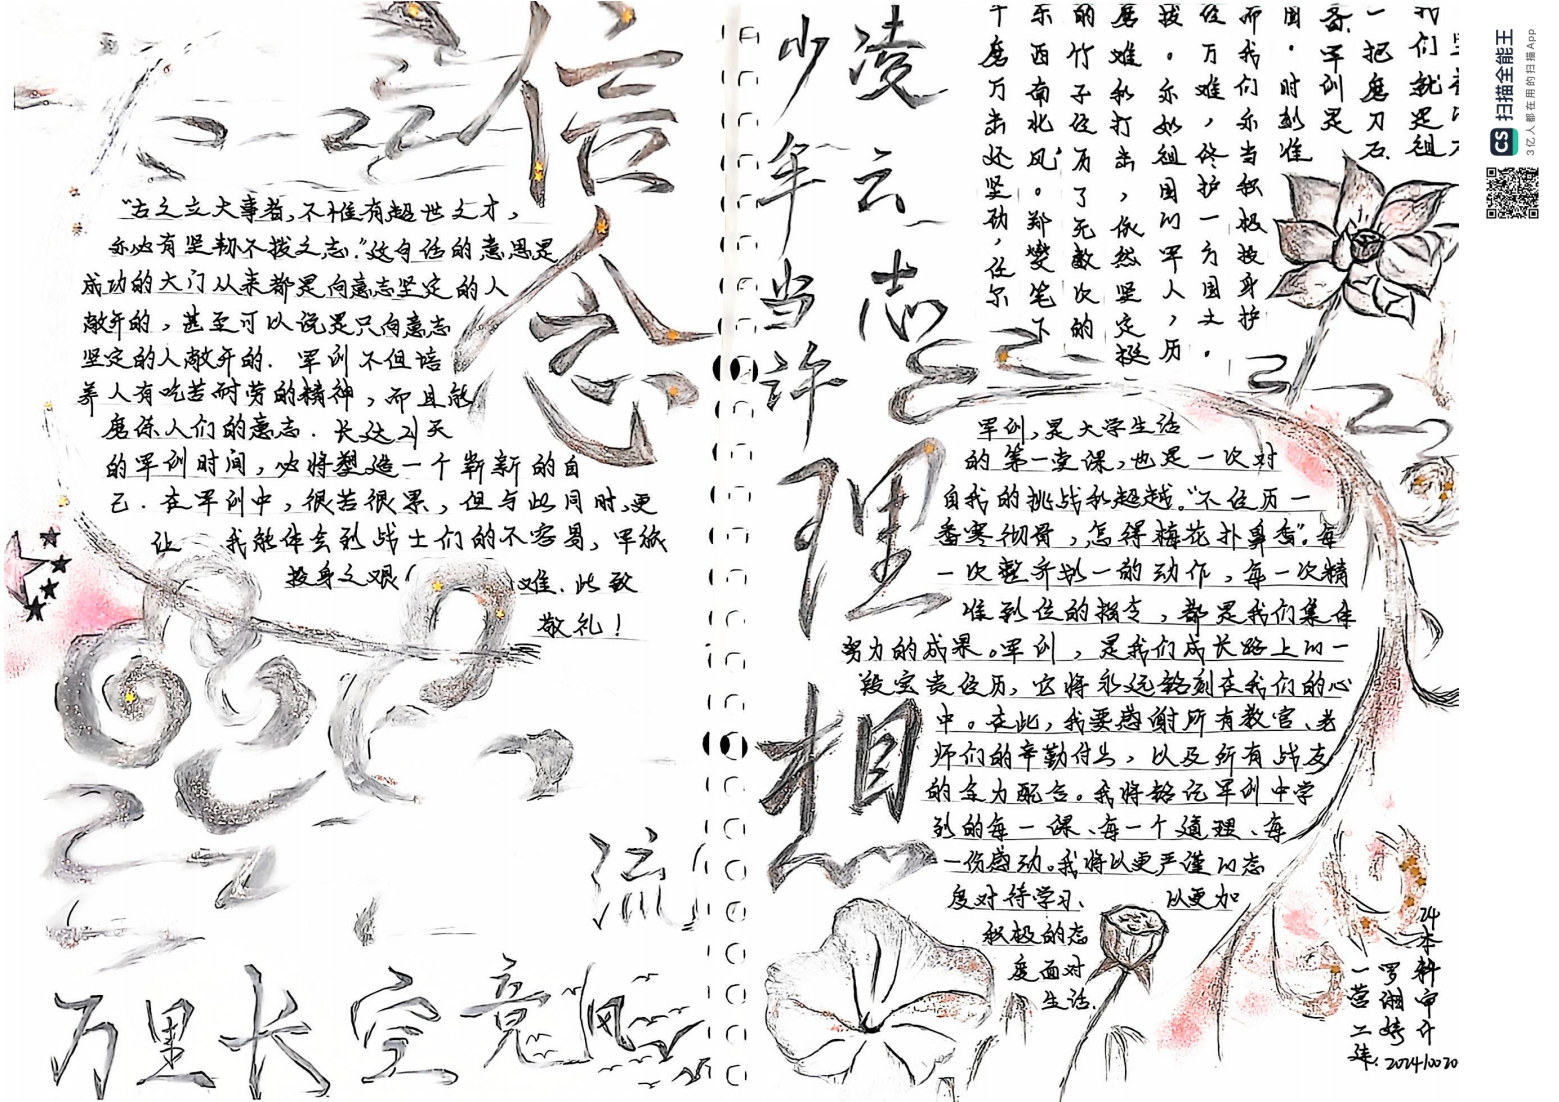 信念
"古之立大事者，不惟有超世之才，
亦必有坚韧不拔之志。"这句话的意思是
成功的大门从来都是向意志坚定的人
敞开的，甚至可以说是只向意志
坚定的人敞开的．军训不但培
养人有吃苦而耐劳的精神，而且能
磨练人们的意志．长达21天
的军训时间，必将塑造一个崭新的自
己．在军训中，很苦很累，但与此同时，更
让我能体会到战士们的不容易，军旅
投身之艰难．此致
敬礼！
万里长空竞风流
少年当许
凌云志
理想
我们就是祖
一把磨刀石
军训是
国．时刻准
而我们亦当积极投身护
任万难，终护一方国土．
拔．亦如祖国的军人，历
磨难和打击，依然坚定挺
的竹子经历了无数次的
东西南北风。郑燮笔下
千磨万击还坚劲，任尔
军训，是大学生活
的第一堂课，也是一次对
自我的挑战和超越。"不经历一
番寒彻骨，怎得梅花扑鼻香"。每
一次整齐划一的动作，每一次精
准到位的指令，都是我们集体
努力的成果。军训，是我们成长路上的一
段宝贵经历，它将永远铭刻在我们的心
中。在此，我要感谢所有教官、老
师们的辛勤付出，以及所有战友
的全力配合。我将铭记军训中学
到的每一课、每一个道理、每
一份感动。我将以更严谨的态
度对待学习、以更加
积极的态
度面对
生活．
24本科审计
罗湘婷
一营二连．
20241020
CS 扫描全能王
3亿人都在用的扫描App